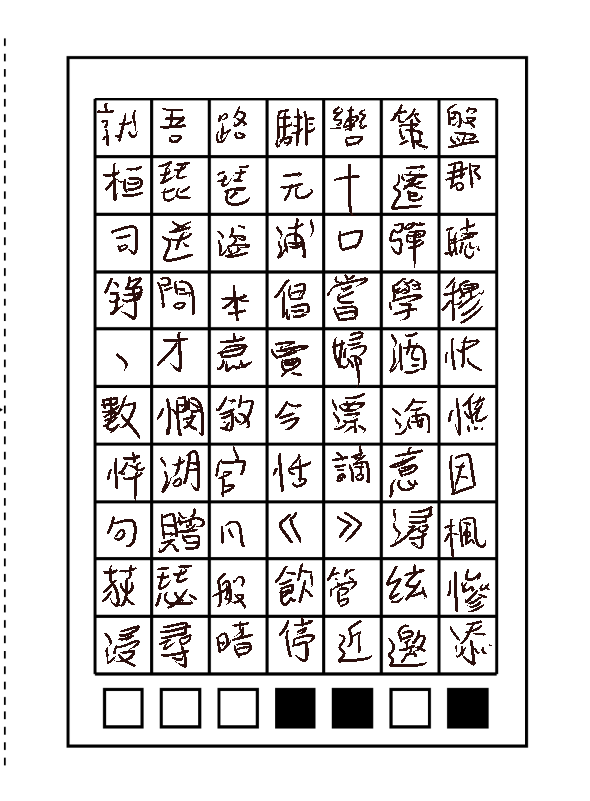 訊吾路騑轡策盤
桓琵琶元十遷郡
司送湓浦口彈聽
錚問本倡嘗學穆
、才衰賈婦酒快
數憫敘今漂淪憔
悴湖官恬謫意因
句贈凡《》潯楓
荻瑟般飲管絃慘
浸尋暗停近邀添